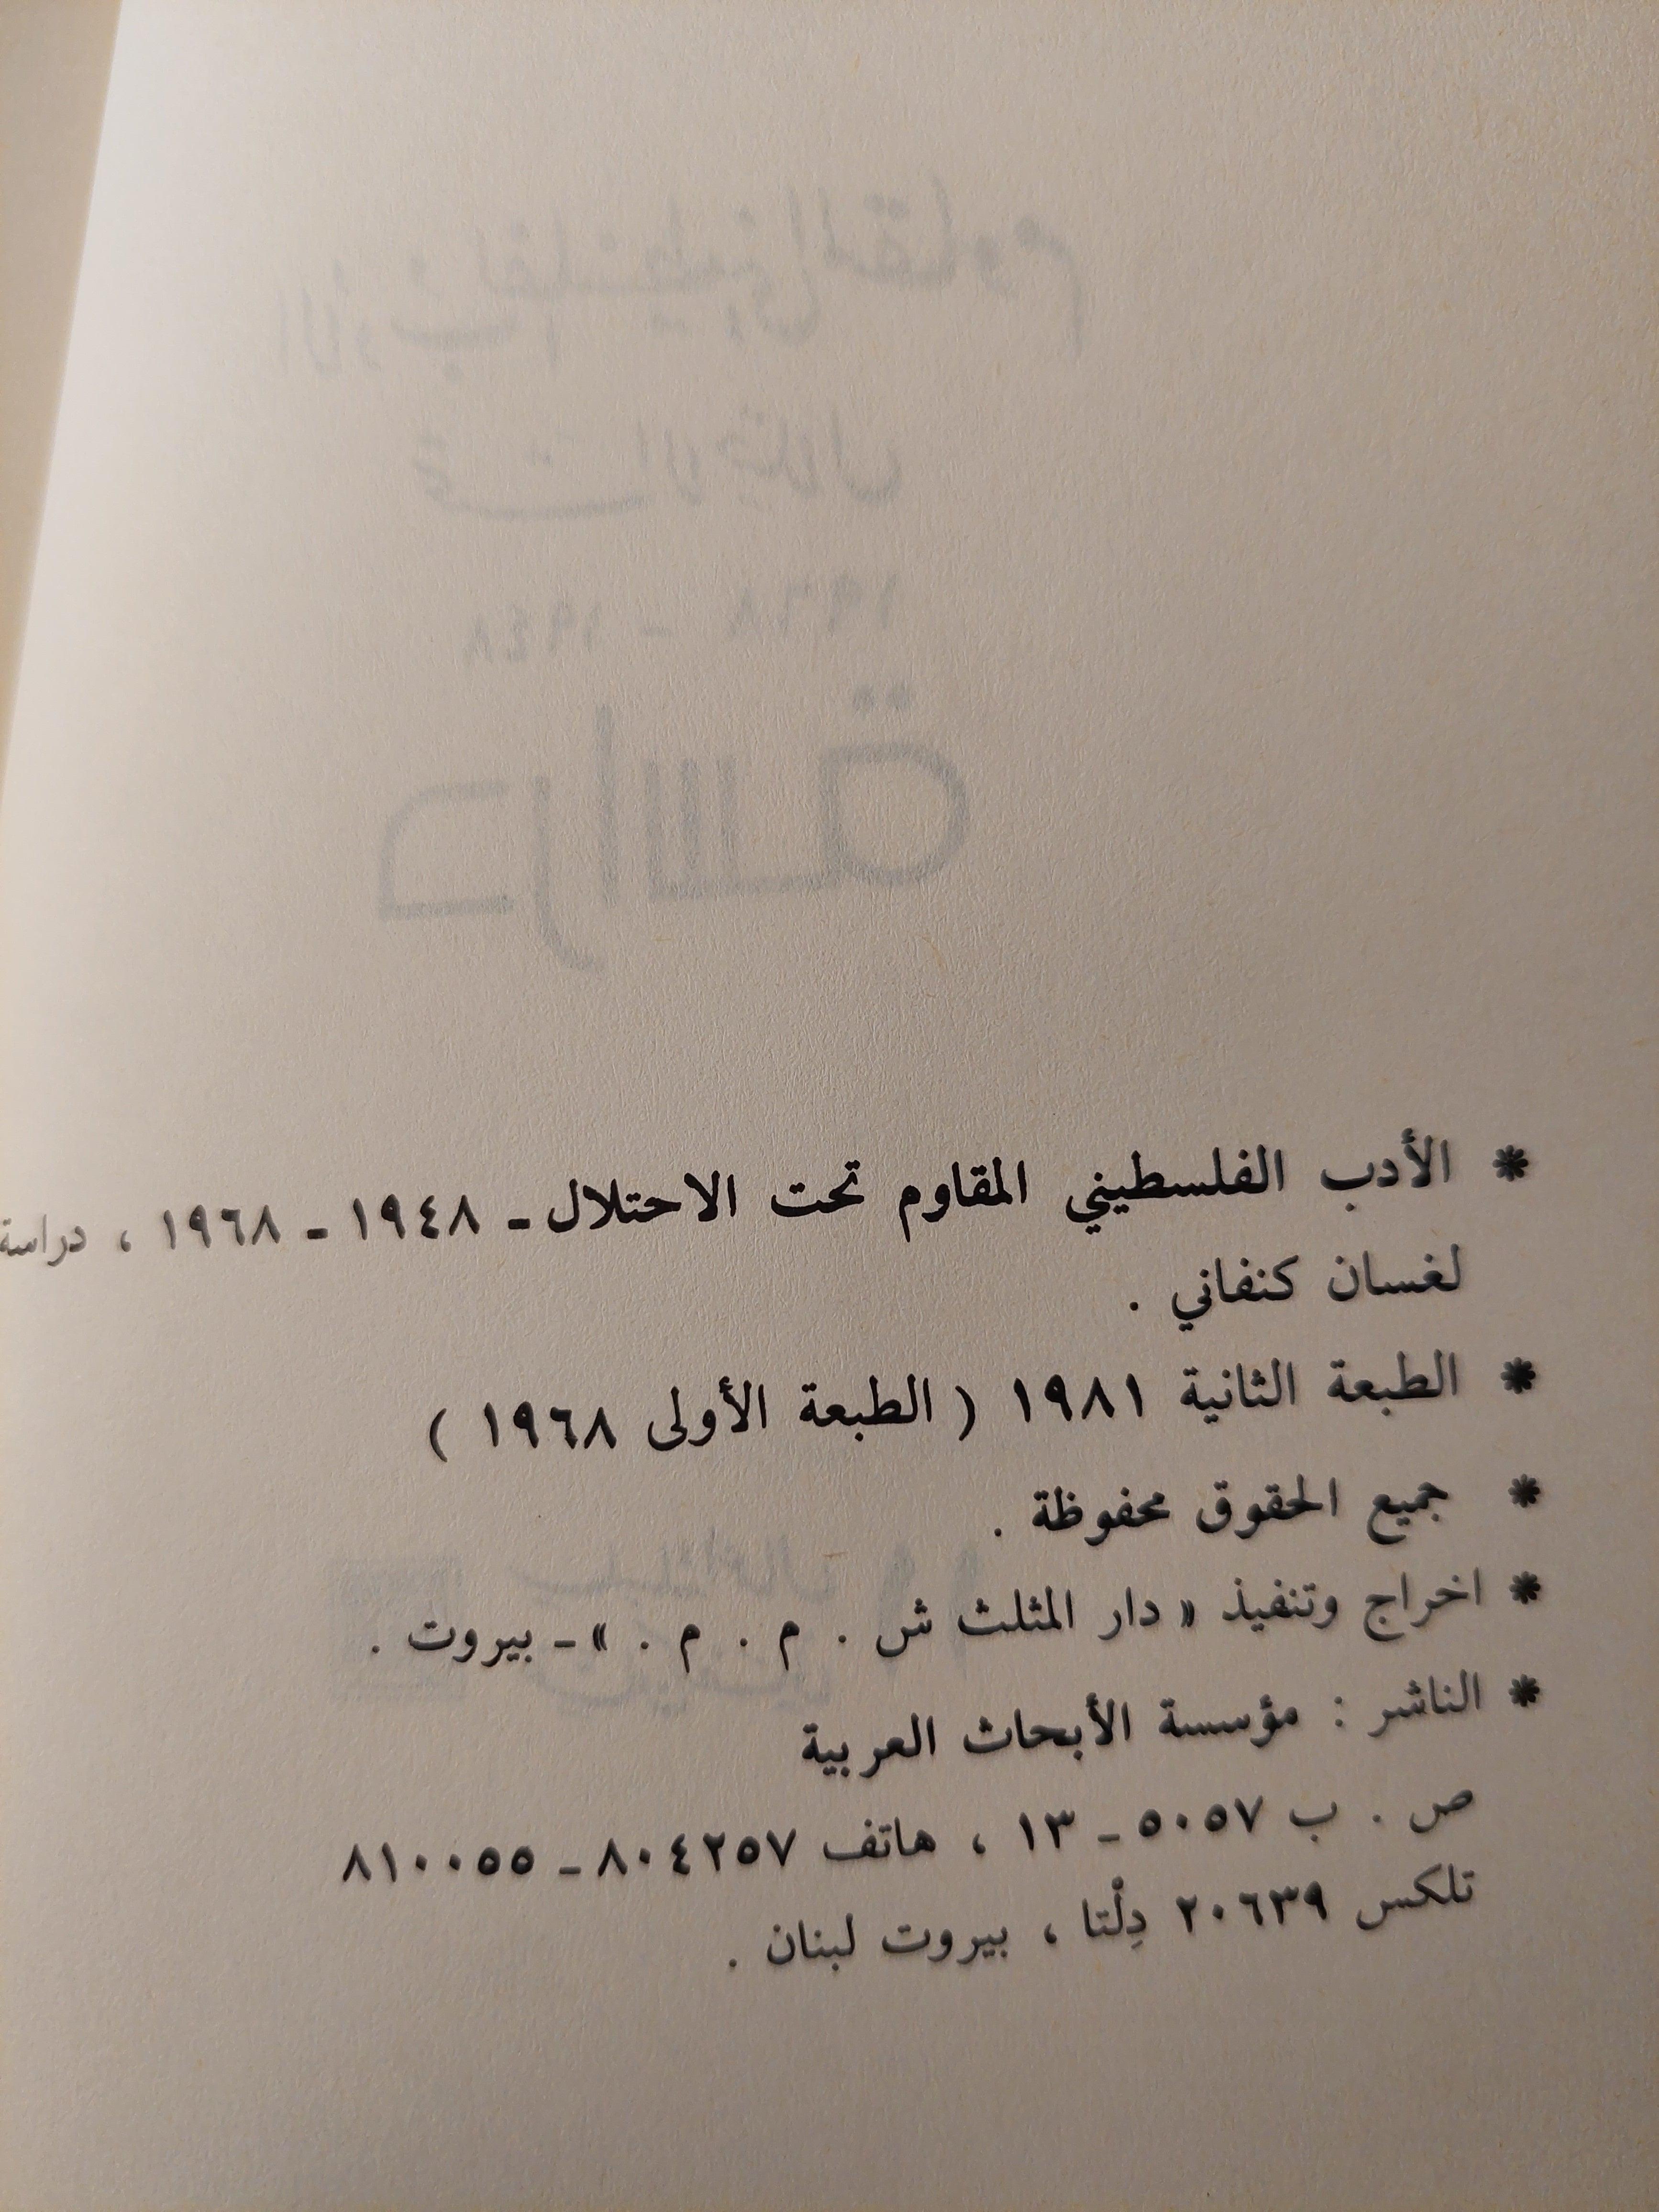 * الأدب الفلسطيني المقاوم تحت الاحتلال - ١٩٤٨ - ١٩٦٨ ، دراسة
لغسان كنفاني .
* الطبعة الثانية ١٩٨١ ( الطبعة الأولى ١٩٦٨ )
* جميع الحقوق محفوظة .
* اخراج وتنفيذ « دار المثلث ش . م . م . » - بيروت .
* الناشر : مؤسسة الأبحاث العربية
ص . ب ٥٠٥٧ - ١٣ ، هاتف ٨٠٤٢٥٧ - ٨١٠٠٥٥
تلكس ٢٠٦٣٩ دِلْتا ، بيروت لبنان .